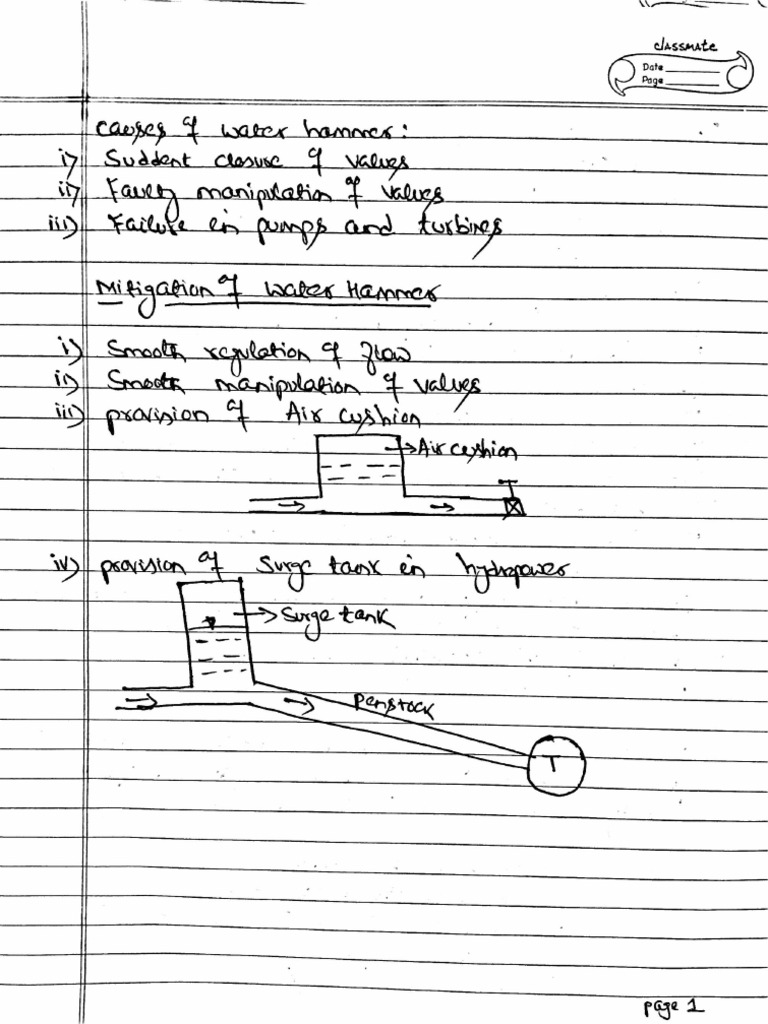 classmate
Date
Page
Causes of water hammer:
i) Suddent closure of valves
ii) Faulty manipulation of valves
iii) Failure in pumps and turbines
Mitigation of Water Hammer
i) Smooth regulation of flow
ii) Smooth manipulation of valves
iii) provision of Air cushion
Air cushion
iv) provision of Surge tank in hydropower
Surge tank
Penstock
T
page 1